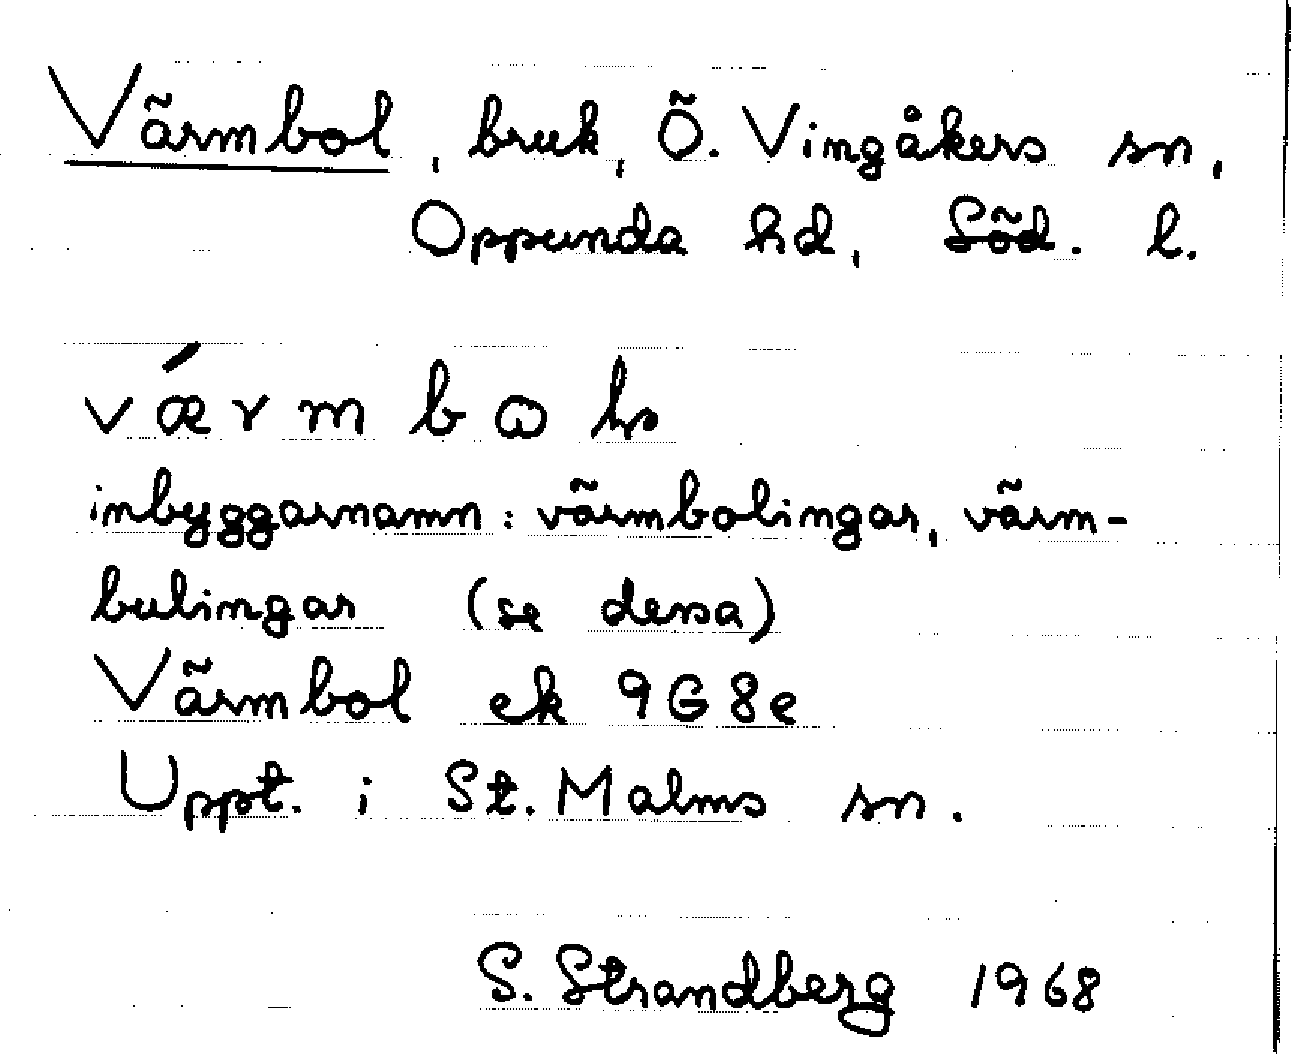 Värmbol, bruk, Ö. Vingåkers sn,
Oppunda hd, Söd. l.
inbyggarnamn: värmbolingar, värm-
bulingar (se dessa)
Värmbol ek 9G8e
Uppt. i St. Malms sn.
S. Strandberg 1968